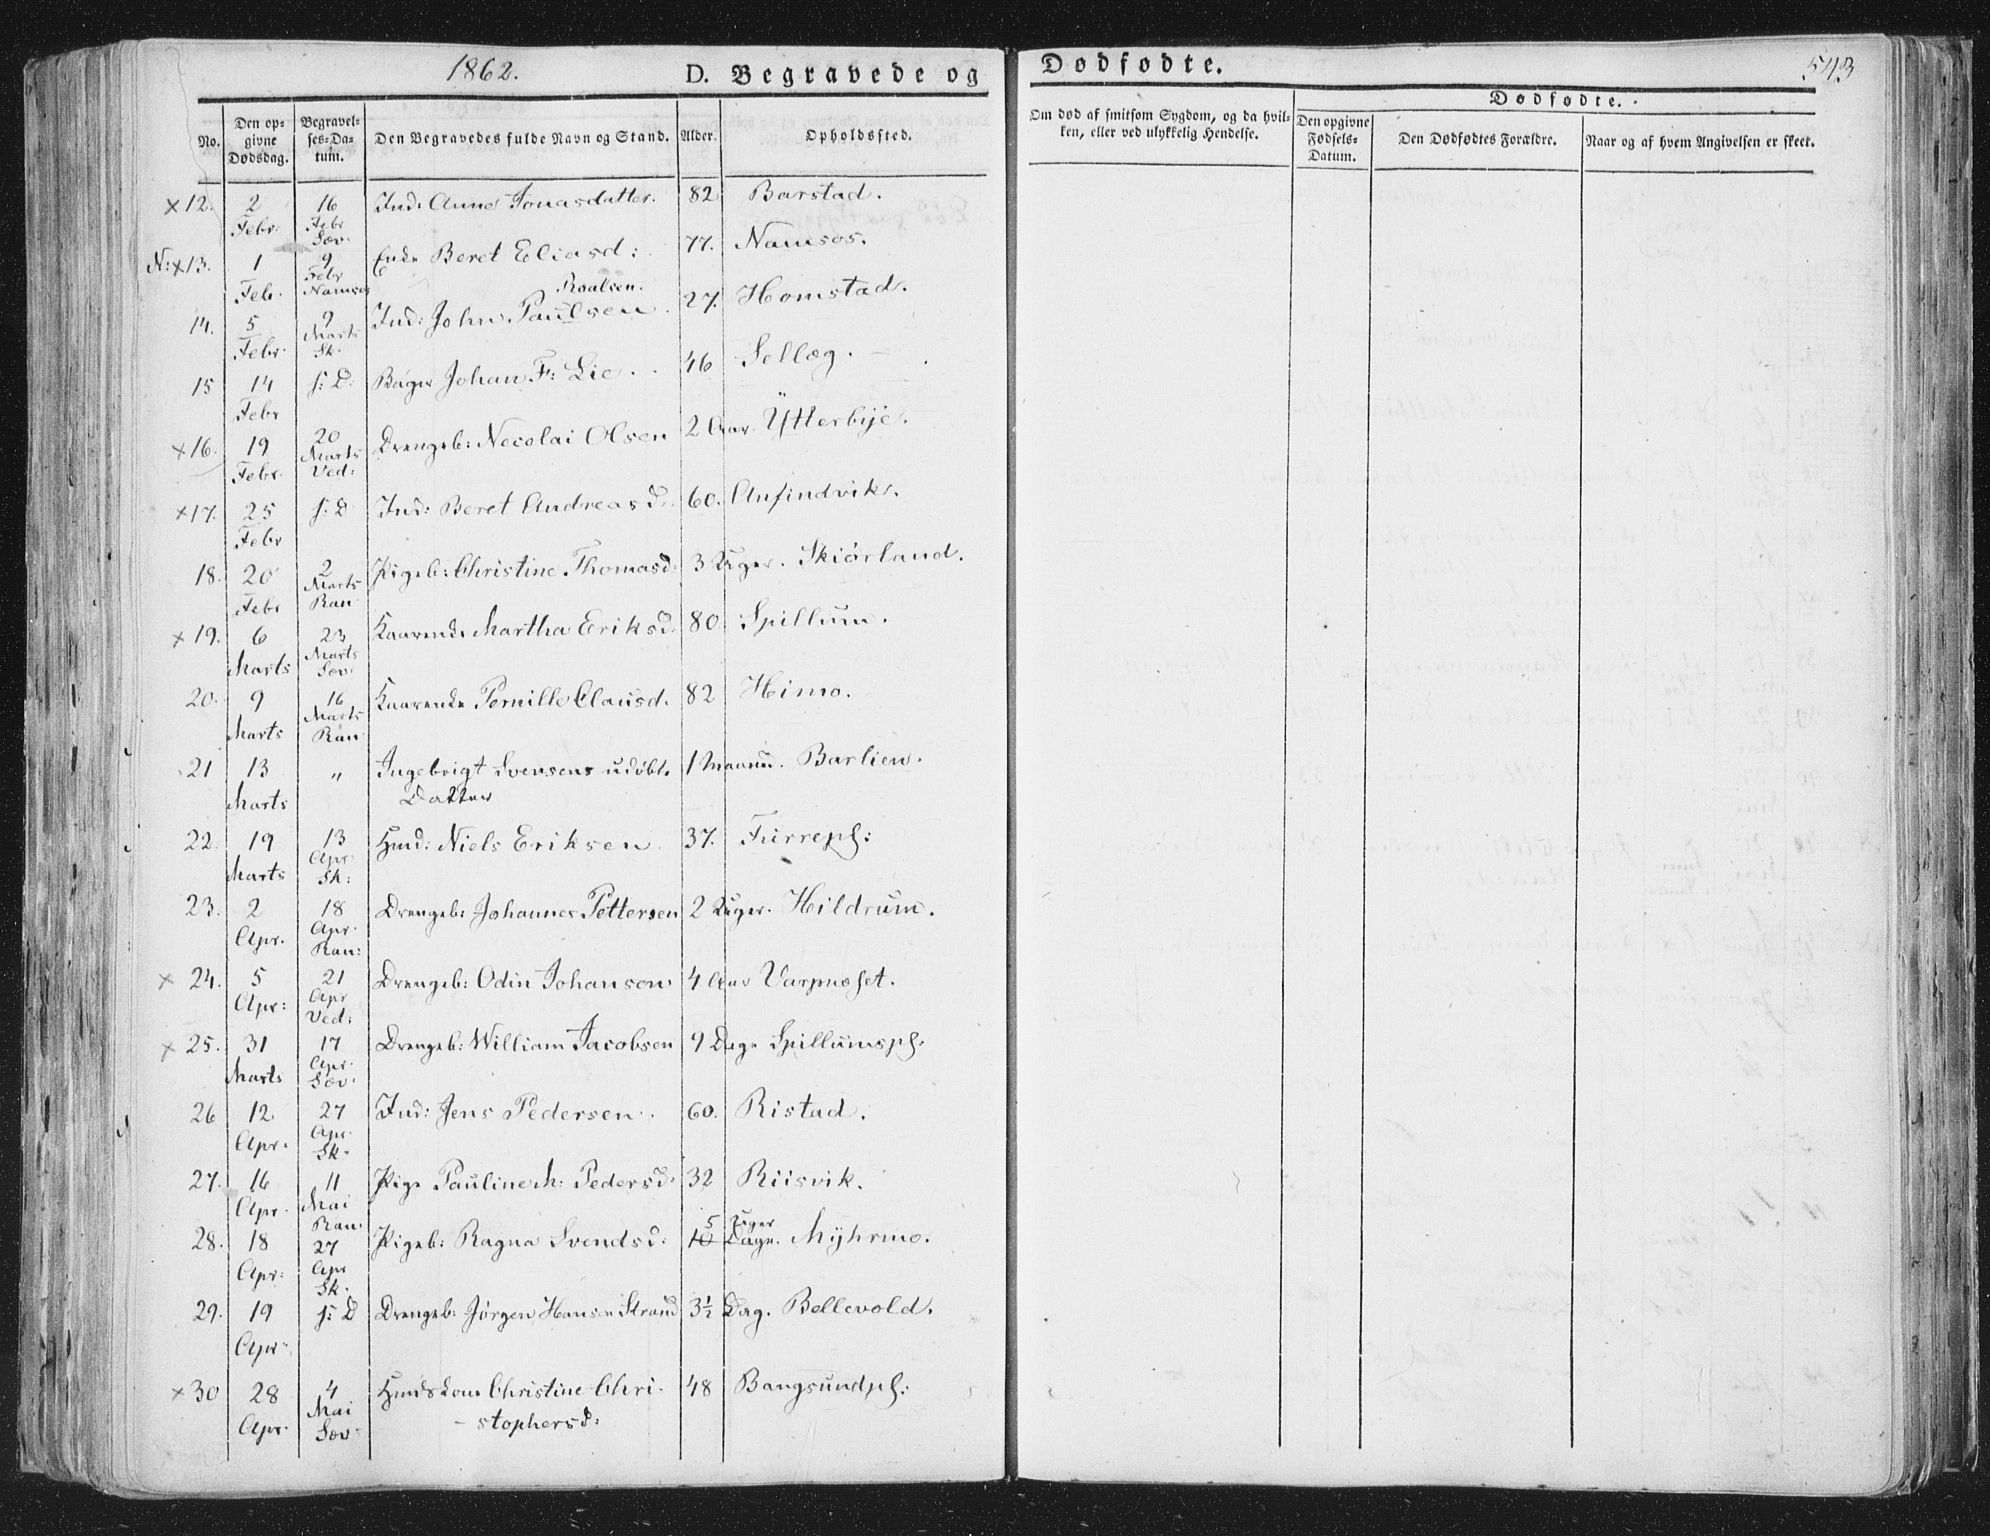 1862.
D. Begravede og Dødfødte.
543
No.
Den opgivne Dødsdag.
Begravelses-Datum.
Den Begravedes fulde Navn og Stand.
Alder.
Opholdssted.
Om død af smitsom Sygdom, og da hvilken, eller ved ulykkelig Hendelse.
Dødfødte.
Den opgivne Fødsels-Datum.
Den Dødfødtes Forældre.
Naar og af hvem Angivelsen er skeet.
×12. 2 Febr. 16 Febr Sæv. Ind. Anne Jonasdatter. 82 Barstad.
N: ×13. 1 Feb. 9 Febr Namsos Enke Beret Eliasd: 77. Namsos.
14. 5 Febr. 9 Marts Sk. Ind: John Paulsen. 27. Homstad.
15 14 Febr s: D: Johan F: Lie. 46 Sellæg.
×16. 19 Febr. 20 Marts Ved: Drengeb: Necolai Olsen 2 Aar. Ytterbye.
×17. 25 Febr s: D Ind: Beret Andreasd. 60. Anfindvik.
18. 20 Febr 2 Marts Ran Pigeb: Christine Thomasd. 3 Uger. Skiørland.
×19. 6 Marts 23 Marts Sæv Kaarenke Martha Eriksd. 80 Spillum.
20. 9 Marts 16 Marts Ran Kaarenke Pernille Clausd. 82 Himo.
21 13 Marts „ Ingebrigt Svensens udøbt. 1 Maaned. Barlien.
Datter
22. 19 Marts 13 Apr Sk: Hmd: Niels Eriksen. 37. Furrepl:
23. 2 Apr. 18 Apr. Ran: Drengeb: Johannes Pettersen 2 Uger. Hildrum.
× 24. 5 Apr: 21 Apr Ved: Drengeb: Odin Johansen 4 Aar Varpneset.
× 25. 31 Marts 17 Apr. Sæv. Drengeb: William Jacobsen 9 Dage Spillumspl.
26 12 Apr. 27 Apr. Sk. Ind: Jens Pedersen. 60. Ristad.
27. 16 Apr. 11 Mai Ran: Pige Pauline M: Pedersd. 32 Riisvik.
28. 18 Apr: 27 Apr Sk. Pigeb: Ragna Svendsd: 10 Dage. 5 Uger Myhrmo.
29. 19 Apr. s: D Drengeb: Jørgen Hansen Strand 3½ Dag. Bellevold.
×30 28 Apr. 4 Mai Sæv. Hmdskone Christine Chri- 48 Bangsundpl:
- stophersd: